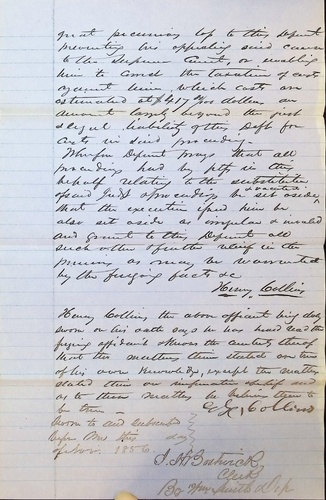 great pecuniary loss to this Defent
preventing his appealing said cause
to the Supreme Court, or enabling
him to correct the taxation of costs
against him, which costs are
estimated at $417 dollars an
amount largely beyond the just
& legal liability of this Deft for
costs in said proceeding.
Wherefore Defent prays that all
proceedings had by pltfs in this
behalf relating to the substitution
& vacated
of said Judgt & proceedings be set aside
that the execution upon him be
also set aside as irregular & invalid
and grant to this Defent all
such other & further relief in the
premises as may be warranted
by the forgoing facts &c
Henry Collins
Henry Collins the above affiant being duly
sworn on his oath says he has heard read the
forgoing affidavit & knows the contents thereof
that the matters therein stated are true
of his own knowledge, except the matters
stated therein on information & belief and
as to those matters he believes them to
be true
Collins
Sworn to and subscribed
before me this day
of 1856.
Bostwick
Clerk
By Dep